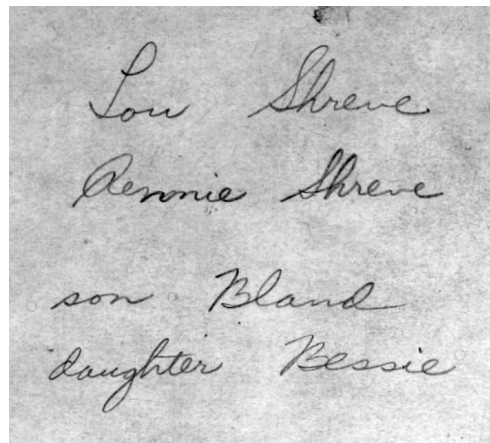 Lou Shreve
Rennie Shreve
son Bland
daughter Bessie